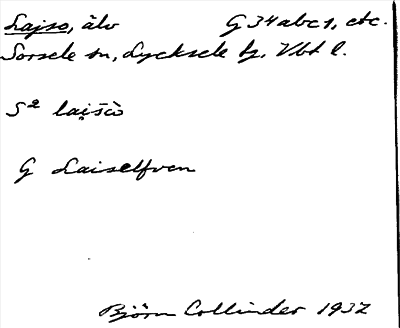 Lajso, älv G 34abc1, etc.
Sorsele sn, Lycksele tg, Vbt l.
S² lai̯šò
G Laiselfven
Björn Collinder 1937